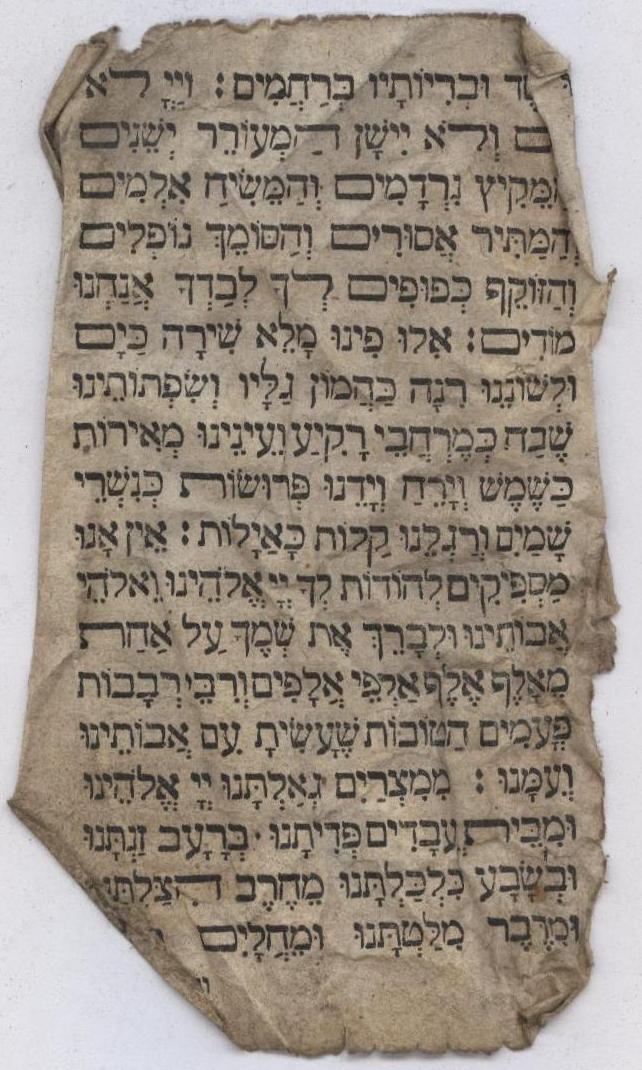 וּבְרִיּוֹתָיו בְּרַחֲמִים: וַיְיָ לֹא
וְלֹא יִישָׁן הַמְעוֹרֵר יְשֵׁנִים
נִרְדָּמִים וְהַמֵּשִׂיחַ אִלְּמִים
הַמַּתִּיר אֲסוּרִים וְהַסּוֹמֵךְ נוֹפְלִים
וְהַזּוֹקֵף כְּפוּפִים לְךָ לְבַדְּךָ אֲנַחְנוּ
מוֹדִים: אִלּוּ פִינוּ מָלֵא שִׁירָה כַּיָּם
וּלְשׁוֹנֵנוּ רִנָּה כַּהֲמוֹן גַּלָּיו וְשִׂפְתוֹתֵינוּ
שֶׁבַח כְּמֶרְחֲבֵי רָקִיעַ וְעֵינֵינוּ מְאִירוֹת
כַּשֶּׁמֶשׁ וְיָרֵחַ וְיָדֵנוּ פְּרוּשׂוֹת כְּנִשְׁרֵי
שָׁמַיִם וְרַגְלֵנוּ קַלּוֹת כָּאַיָּלוֹת: אֵין אָנוּ
מַסְפִּיקִים לְהוֹדוֹת לְךָ יְיָ אֱלֹהֵינוּ וֵאלֹהֵי
אֲבוֹתֵינוּ וּלְבָרֵךְ אֶת שְׁמֶךָ עַל אַחַת
מֵאָלֶף אֶלֶף אַלְפֵי אֲלָפִים וְרִבֵּי רְבָבוֹת
פְּעָמִים הַטּוֹבוֹת שֶׁעָשִׂיתָ עִם אֲבוֹתֵינוּ
וְעִמָּנוּ: מִמִּצְרַיִם גְּאַלְתָּנוּ יְיָ אֱלֹהֵינוּ
וּמִבֵּית עֲבָדִים פְּדִיתָנוּ. בְּרָעָב זַנְתָּנוּ
וּבְשָׂבָע כִּלְכַּלְתָּנוּ מֵחֶרֶב הִצַּלְתָּנוּ
וּמִדֶּבֶר מִלַּטְתָּנוּ וּמֵחֳלָיִים